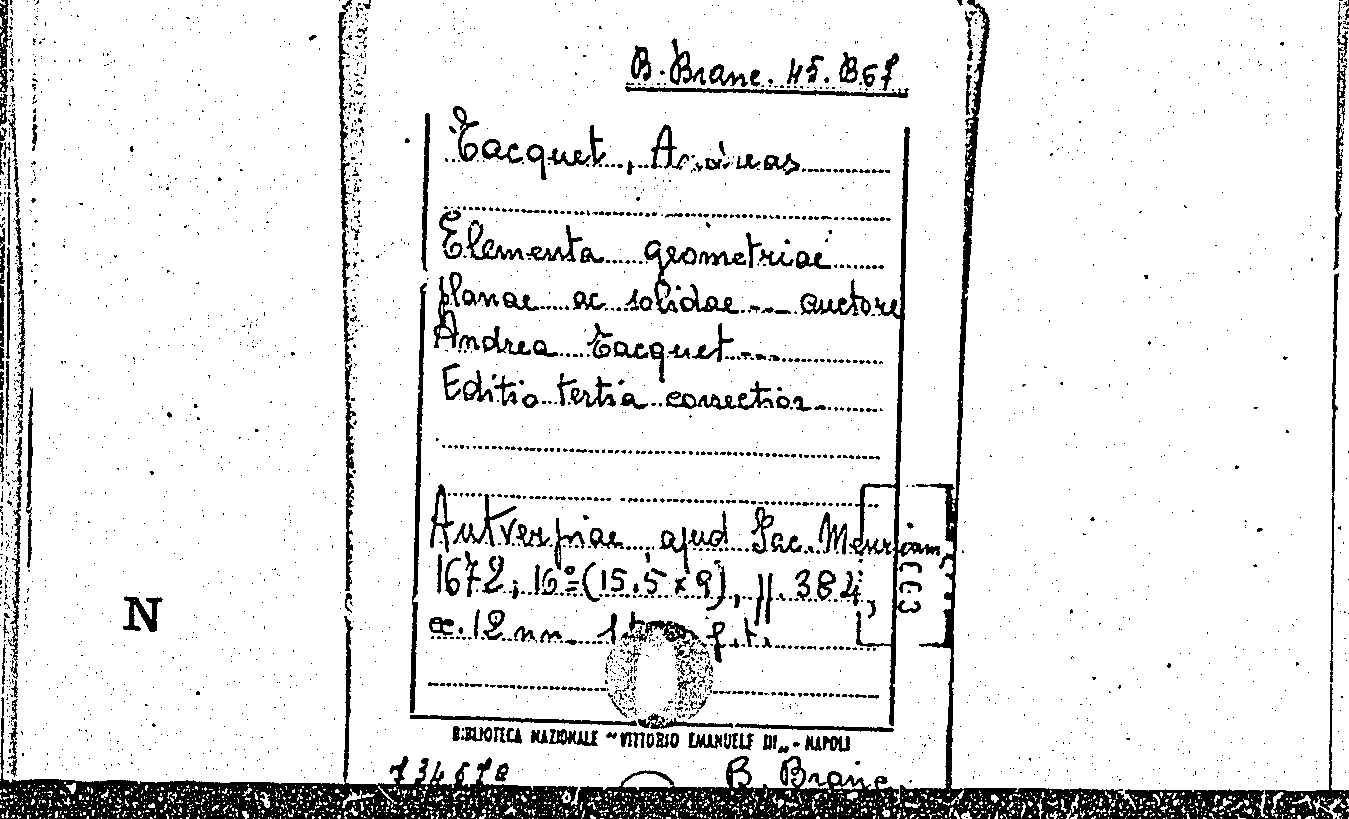 B. Branc. 45. B67
Tacquet, Andreas
Elementa geometriae
planae ac solidae --- auctore
Andrea Tacquet ---
Editio tertia correctior
Antverpiae apud Iac. Meursiam,
1672, 16º (15.5 x 9), pp. 384,
cc. 12 nn. f.t.
N
BIBLIOTECA NAZIONALE "VITTORIO EMANUELE III„ - NAPOLI
B. Branc.